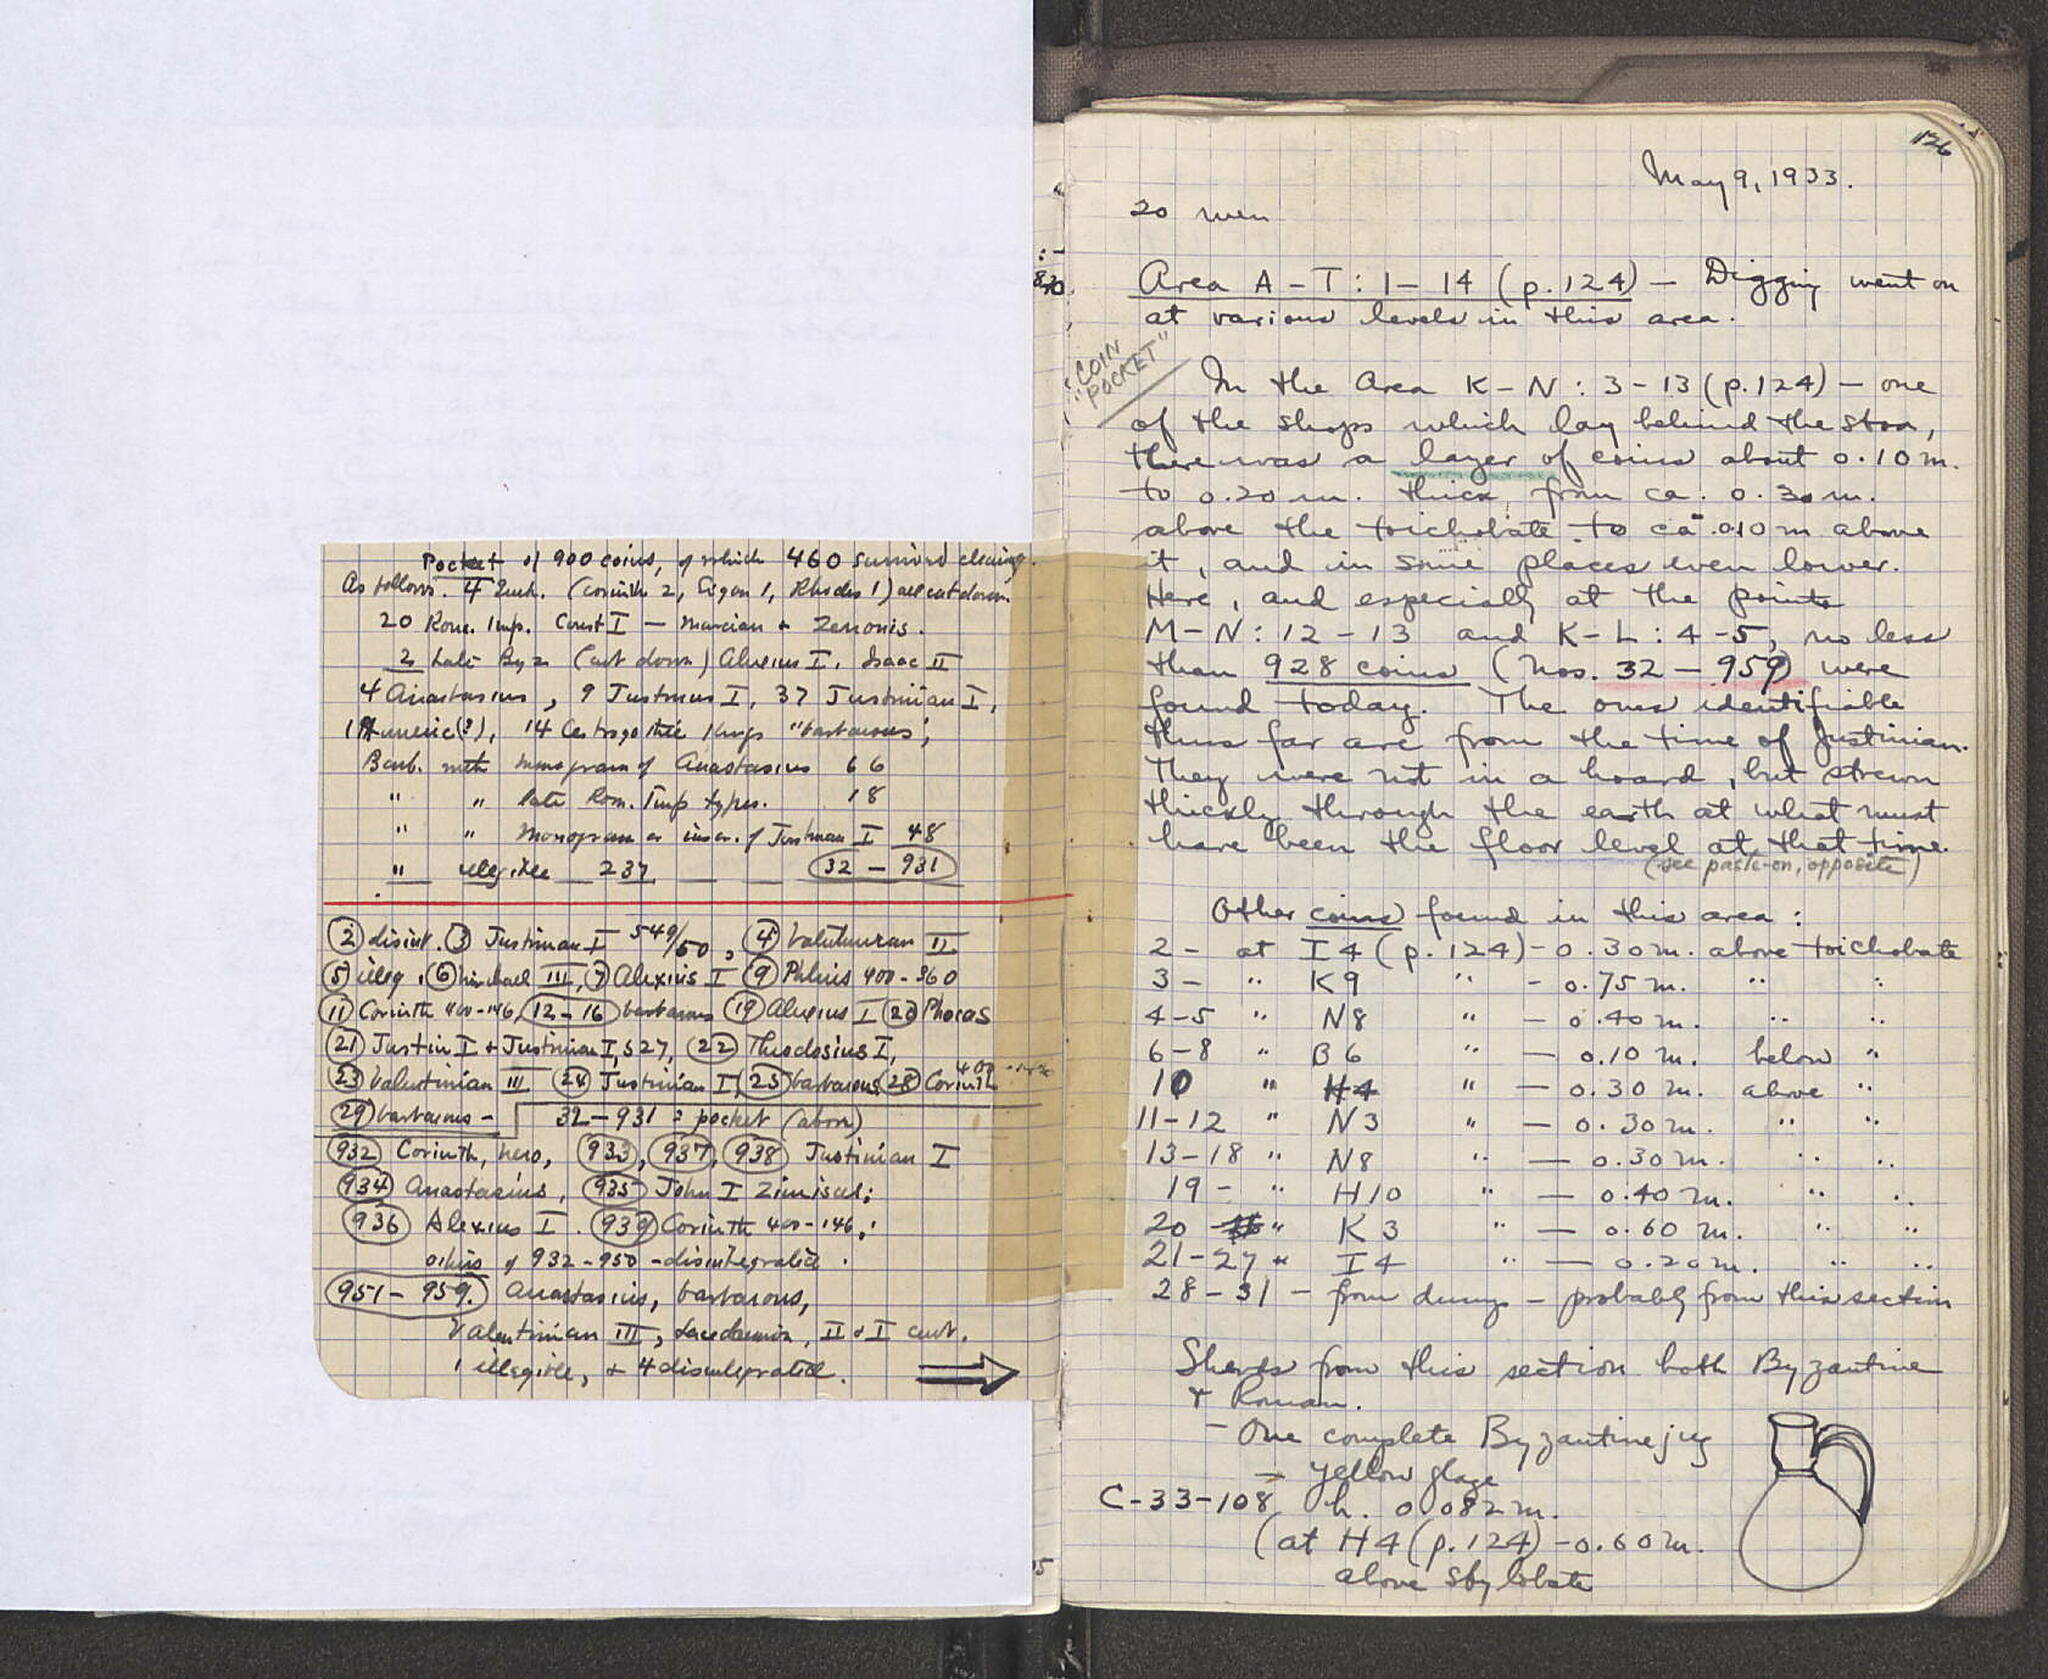 Pocket of 900 coins, of which 460 survived cleaning.
As follows. 4 (Corinth 2, 1, Rhodes 1) all cut down.
20 Rom. Imp. Const I — Marcian + Zenonis.
2 Late Byz (cut down) Alexius I, Isaac II
4 Anastasius, 9 Justinus I, 37 Justinian I,
1 Huneric(?), 14 Kings "barbarous";
Barb. with monogram of Anastasius 66
" " late Rom. Imp types. 18
" " Monogram or inscr. of Justinian I 48
" illegible 237 32 — 931
2 disint. 3 Justinian I 549/50, 4 Valentinian II
5 illeg, 6 Michael III, 7 Alexius I 9 Phlius 400-360
11 Corinth 400-146, 12-16 barbarous 19 Alexius I 20 Phocas
21 Justin I + Justinian I, 527, 22 Theodosius I,
23 Valentinian III 24 Justinian I, 25 barbarous, 28 Corinth 400-146
29 barbarous - 32-931 = pocket (above)
932 Corinth, hero, 933, 937, 938 Justinian I
934 Anastasius, 935 John I Zimisces;
936 Alexius I. 939 Corinth 400-146,;
others of 932-950 - disintegrated.
951-959. Anastasius, barbarous,
Valentinian III, Lacedaemon, II + I cent.
1 illegible, + 4 disintegrated.
126
May 9, 1933.
20 men
Area A-T: 1-14 (p.124) — Digging went on
at various levels in this area.
"COIN
POCKET"
In the Area K-N: 3-13 (p.124) — one
of the shops which lay behind the stoa,
there was a layer of coins about 0.10 m.
to 0.20 m. thick, from ca. 0.30 m.
above the toichobate to ca. 0.10 m above
it, and in some places even lower.
Here, and especially at the points
M-N: 12-13 and K-L: 4-5, no less
than 928 coins (nos. 32-959) were
found today. The ones identifiable
thus far are from the time of Justinian.
They were not in a hoard, but strewn
thickly through the earth at what must
have been the floor level at that time.
(see paste-on, opposite)
Other coins found in this area:
2 - at I4 (p.124) - 0.30 m. above toichobate
3 - " K9 " - 0.75 m. " "
4-5 " N8 " — 0.40 m. " "
6-8 " B6 " — 0.10 m. below "
10 " H4 " — 0.30 m. above "
11-12 " N3 " — 0.30 m. " "
13-18 " N8 " — 0.30 m. " "
19 - " H10 " — 0.40 m. " "
20 " K3 " — 0.60 m. " "
21-27 " I4 " — 0.20 m. " "
28-31 - from dump - probably from this section
Sherds from this section both Byzantine
+ Roman.
- One complete Byzantine jug
- yellow glaze
C-33-108 h. 0.082 m.
(at H4 (p.124) - 0.60 m.
above stylobate